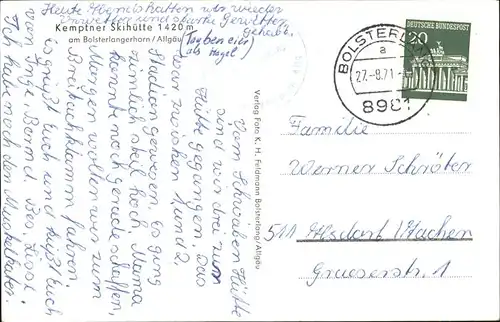 Heute Abend hatten wir wieder
Unwetter und starke Gewitter
gehabt.
(Tauben eier
als Hagel
Kemptner Skihütte 1420 m
am Bolsterlangerhorn / Allgäu
Vom Schwaben Hütte
sind wir drei zum
Hütte gegangen. Das
war zwischen 1 und 2
Stadion gewesen. Es ging
ziemlich steil hoch, Mama
konnte noch gerade schaffen,
Morgen wollen wir zum
Breitachklamm fahren.
Es grüßt euch und küßt euch
von Inge, Bernd
Ich habe noch den Muskelkater.
Verlag Foto K. H. Feldmann Bolsterlang/Allgäu
DEUTSCHE BUNDESPOST
20
BOLSTERLANG
a
27.-8.71-
8981
Familie
Werner Schröter
511 Alsdorf / Aachen
Graeserstr. 1